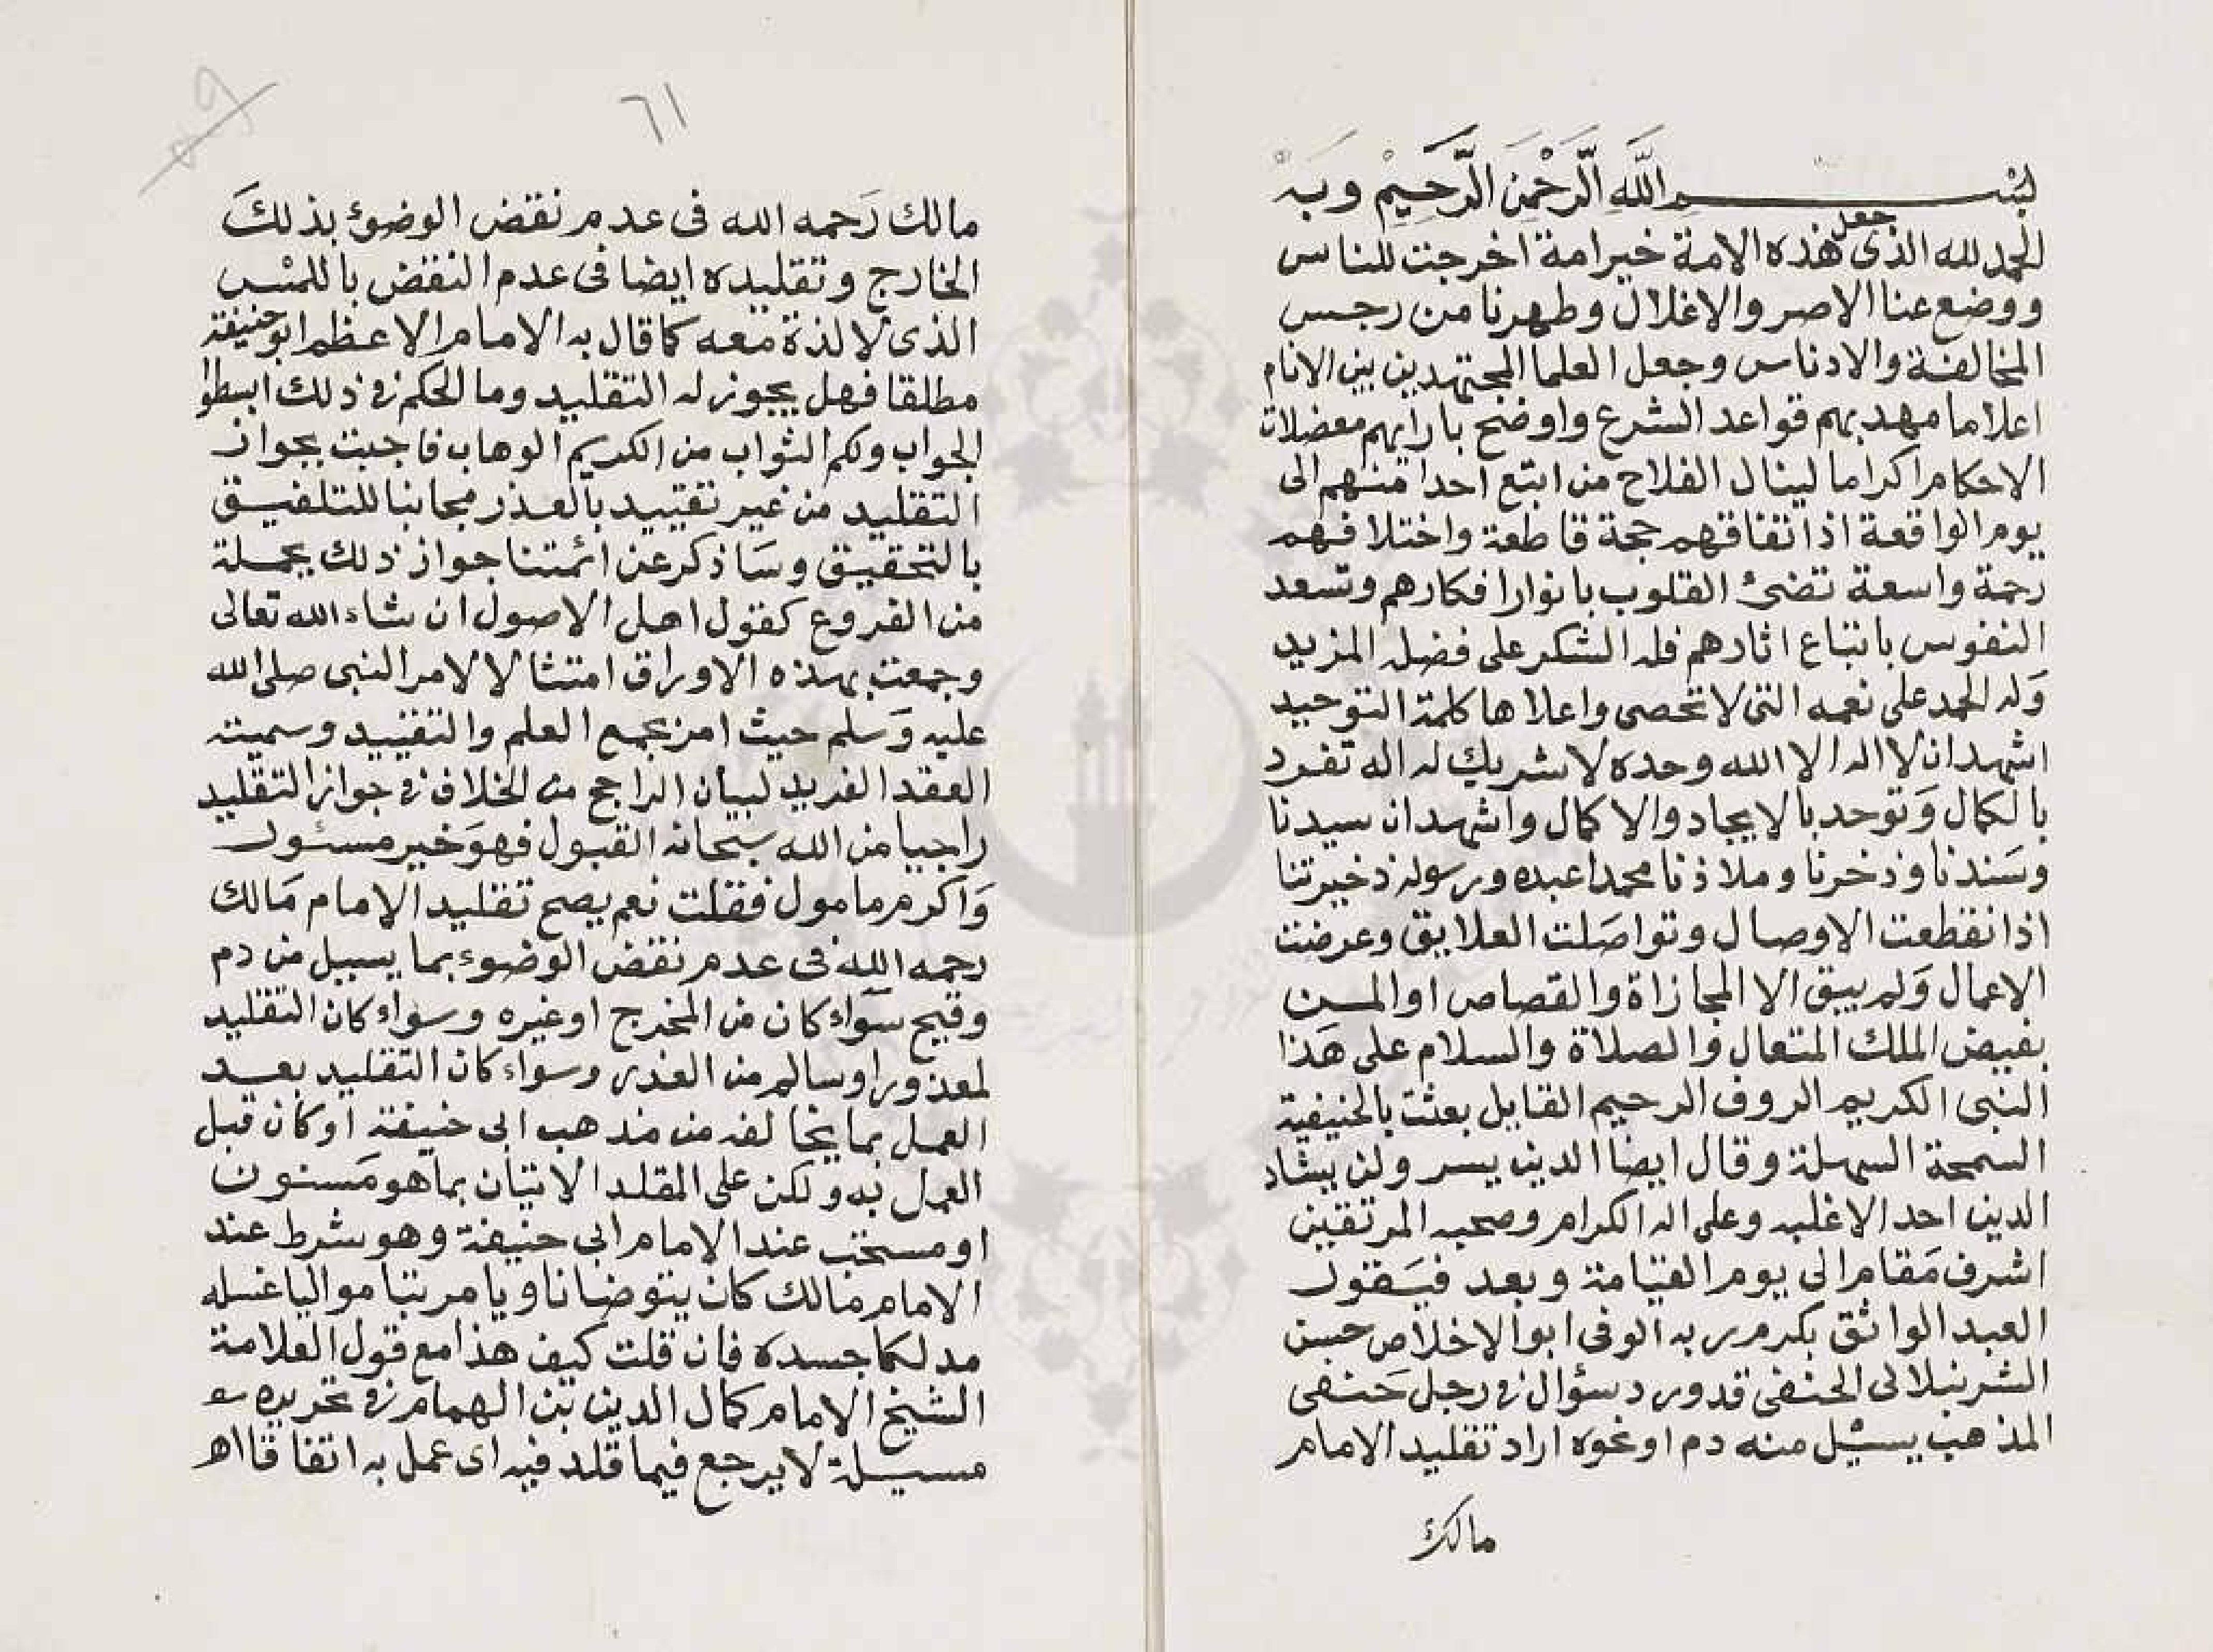 بسم الله الرحمن الرحيم وبه
الحمد لله الذى جعل هذه الامة خير امة اخرجت للناس
ووضع عنا الاصر والاغلال وطهرنا من رجس
المخالفة والادناس وجعل العلما المجتهدين بين الانام
اعلاما مهد بهم قواعد الشرع واوضح بارايهم معضلات
الاحكام اكراما لينال الفلاح من اتبع احدا منهم الى
يوم الواقعة اذ اتفاقهم حجة قاطعة واختلافهم
رحمة واسعة تضئ القلوب بانوار افكارهم وتسعد
النفوس باتباع اثارهم فله الشكر على فضله المزيد
وله الحمد على نعمه التى لا تحصى واعلاها كلمة التوحيد
اشهد ان لا اله الا الله وحده لا شريك له اله تفرد
بالكمال وتوحد بالايجاد والاكمال واشهد ان سيدنا
وسندنا وذخرنا وملاذنا محمدا عبده ورسوله ذخيرتنا
اذا انقطعت الاوصال وتواصلت العلايق وعرضت
الاعمال ولم يبق الا المجازاة والقصاص او المن
بفيض الملك المتعال والصلاة والسلام على هذا
النبى الكريم الروف الرحيم القايل بعثت بالحنيفية
السمحة السهلة وقال ايضا الدين يسر ولن يشاد
الدين احد الا غلبه وعلى اله الكرام وصحبه المرتقين
اشرف مقام الى يوم القيامة وبعد فيقول
العبد الواثق بكرم ربه الوفى ابو الاخلاص حسن
الشرنبلالى الحنفى قد ورد سؤال فى رجل حنفى
المذهب يسيل منه دم او نحوه اراد تقليد الامام
مالك
٦١
مالك رحمه الله فى عدم نقض الوضوء بذلك
الخارج وتقليده ايضا فى عدم النقض باللمس
الذى لا لذة معه كما قال به الامام الاعظم ابو حنيفة
مطلقا فهل يجوز له التقليد وما الحكم فى ذلك ابسطوا
الجواب ولكم الثواب من الكريم الوهاب فاجبت بجواز
التقليد من غير تقييد بالعذر مجانبا للتلفيق
بالتحقيق وساذكر عن ائمتنا جواز ذلك بجملة
من الفروع كقول اهل الاصول ان شاء الله تعالى
وجمعت بهذه الاوراق امتثالا لامر النبى صلى الله
عليه وسلم حيث امر بجمع العلم والتقييد وسميته
العقد الفريد لبيان الراجح من الخلاف فى جواز التقليد
راجيا من الله سبحانه القبول فهو خير مسئول
واكرم مامول فقلت نعم يصح تقليد الامام مالك
رحمه الله فى عدم نقض الوضوء بما يسيل من دم
وقيح سواء كان من المخرج او غيره وسواء كان التقليد
لمعذور او سالم من العذر وسواء كان التقليد بعد
العمل بما يخالفه من مذهب ابى حنيفة او كان قبل
العمل به ولكن على المقلد الاتيان بما هو مسنون
او مستحب عند الامام ابى حنيفة وهو شرط عند
الامام مالك كان يتوضا ناويا مرتبا مواليا غسله
مدلكا جسده فان قلت كيف هذا مع قول العلامة
الشيخ الامام كمال الدين بن الهمام فى تحريره
مسيلة لا يرجع فيما قلد فيه اى عمل به اتفاقا اهـ